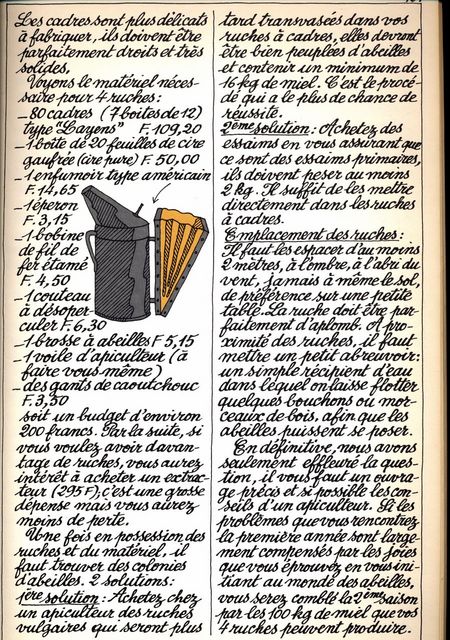 Les cadres sont plus délicats
à fabriquer, ils doivent être
parfaitement droits et très
solides.
Voyons le matériel néces-
saire pour 4 ruches:
_ 80 cadres (7 boites de 12)
type "Layens" F. 109,20
_ 1 boîte de 20 feuilles de cire
gaufrée (cire pure) F. 50,00
_ 1 enfumoir type américain
F. 14,65
_ 1 éperon
F. 3,15
_ 1 bobine
de fil de
fer étamé
F. 4,50
_ 1 couteau
à désoper-
culer F. 6,30
_ 1 brosse à abeilles F 5,15
_ 1 voile d'apiculteur (à
faire vous-même)
_ des gants de caoutchouc
F. 3,50
soit un budget d'environ
200 francs. Par la suite, si
vous voulez avoir davan-
tage de ruches, vous aurez
intérêt à acheter un extrac-
teur (295 F), c'est une grosse
dépense mais vous aurez
moins de perte.
Une fois en possession des
ruches et du matériel, il
faut trouver des colonies
d'abeilles. 2 solutions:
1ère solution: Achetez chez
un apiculteur des ruches
vulgaires qui seront plus
tard transvasées dans vos
ruches à cadres, elles devront
être bien peuplées d'abeilles
et contenir un minimum de
16 kg de miel. C'est le procé-
dé qui a le plus de chance de
réussite.
2ème solution: Achetez des
essaims en vous assurant que
ce sont des essaims primaires,
ils doivent peser au moins
2 kg. Il suffit de les mettre
directement dans les ruches
à cadres.
Emplacement des ruches:
Il faut les espacer d'au moins
2 mètres, à l'ombre, à l'abri du
vent, jamais à même le sol,
de préférence sur une petite
table. La ruche doit être par-
faitement d'aplomb. A pro-
ximité des ruches, il faut
mettre un petit abreuvoir:
un simple récipient d'eau
dans lequel on laisse flotter
quelques bouchons ou mor-
ceaux de bois, afin que les
abeilles puissent se poser.
En définitive, nous avons
seulement effleuré la ques-
tion, il vous faut un ouvra-
ge précis et si possible les con-
seils d'un apiculteur. Si les
problèmes que vous rencontrez
la première année sont large-
ment compensés par les joies
que vous éprouvez en vous ini-
tiant au monde des abeilles,
vous serez comblé la 2ème saison
par les 100 kg de miel que vos
4 ruches peuvent produire.